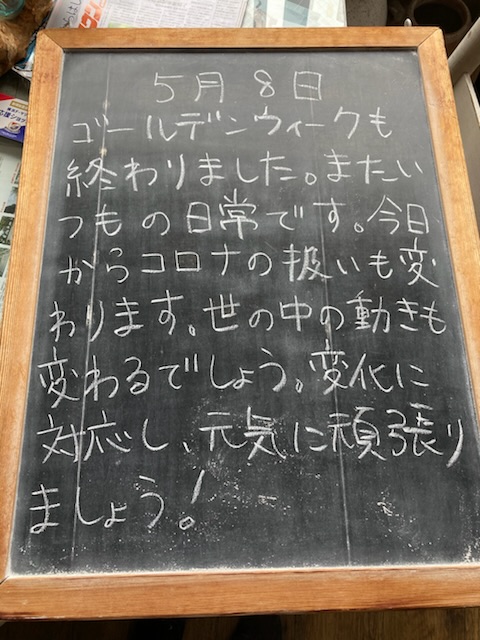 5月8日
ゴールデンウィークも
終わりました。またい
つもの日常です。今日
からコロナの扱いも変
わります。世の中の動きも
変わるでしょう。変化に
対応し、元気に頑張り
ましょう!